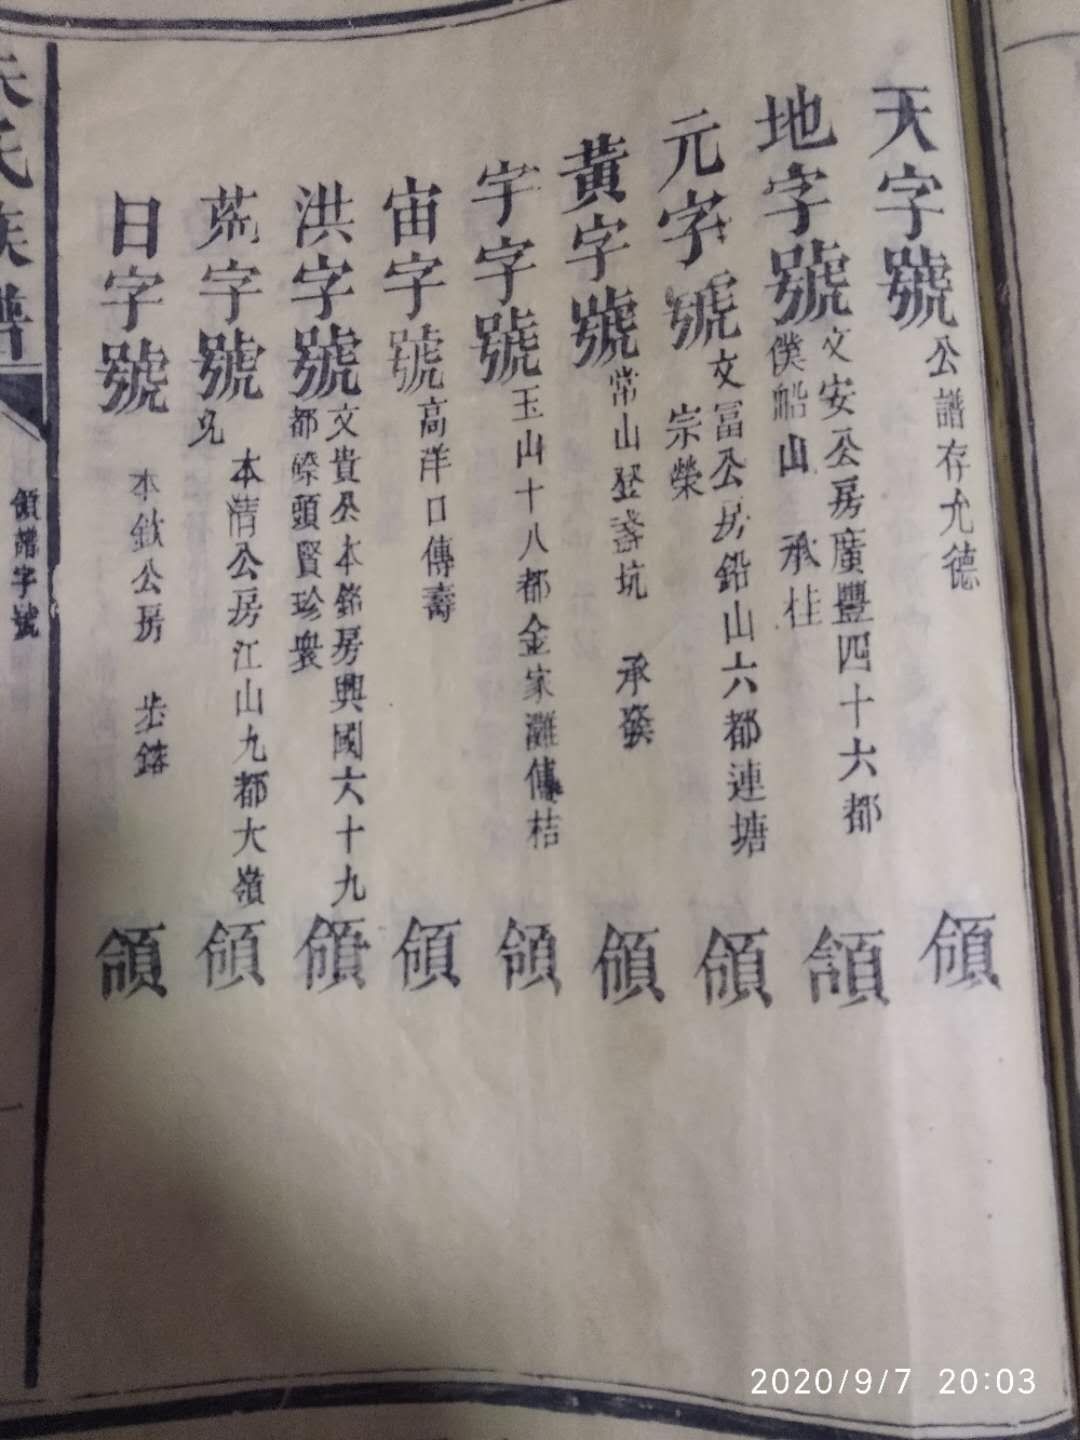 天字號 公譜存允德 領
地字號 文安公房廣豐四十六都僕船山 承柱 領
元字號 文冨公房鉛山六都連塘宗榮 領
黃字號 常山登盞坑 承發 領
宇字號 玉山十八都金家灘傳桔 領
宙字號 高洋口傳壽 領
洪字號 文貴公本銘房興國六十九都 頭賢珍眾 領
荒字號 本清公房江山九都大嶺 領
日字號 本欽公房 步鎔 領
氏族譜
領譜字號
2020/9/7 20:03